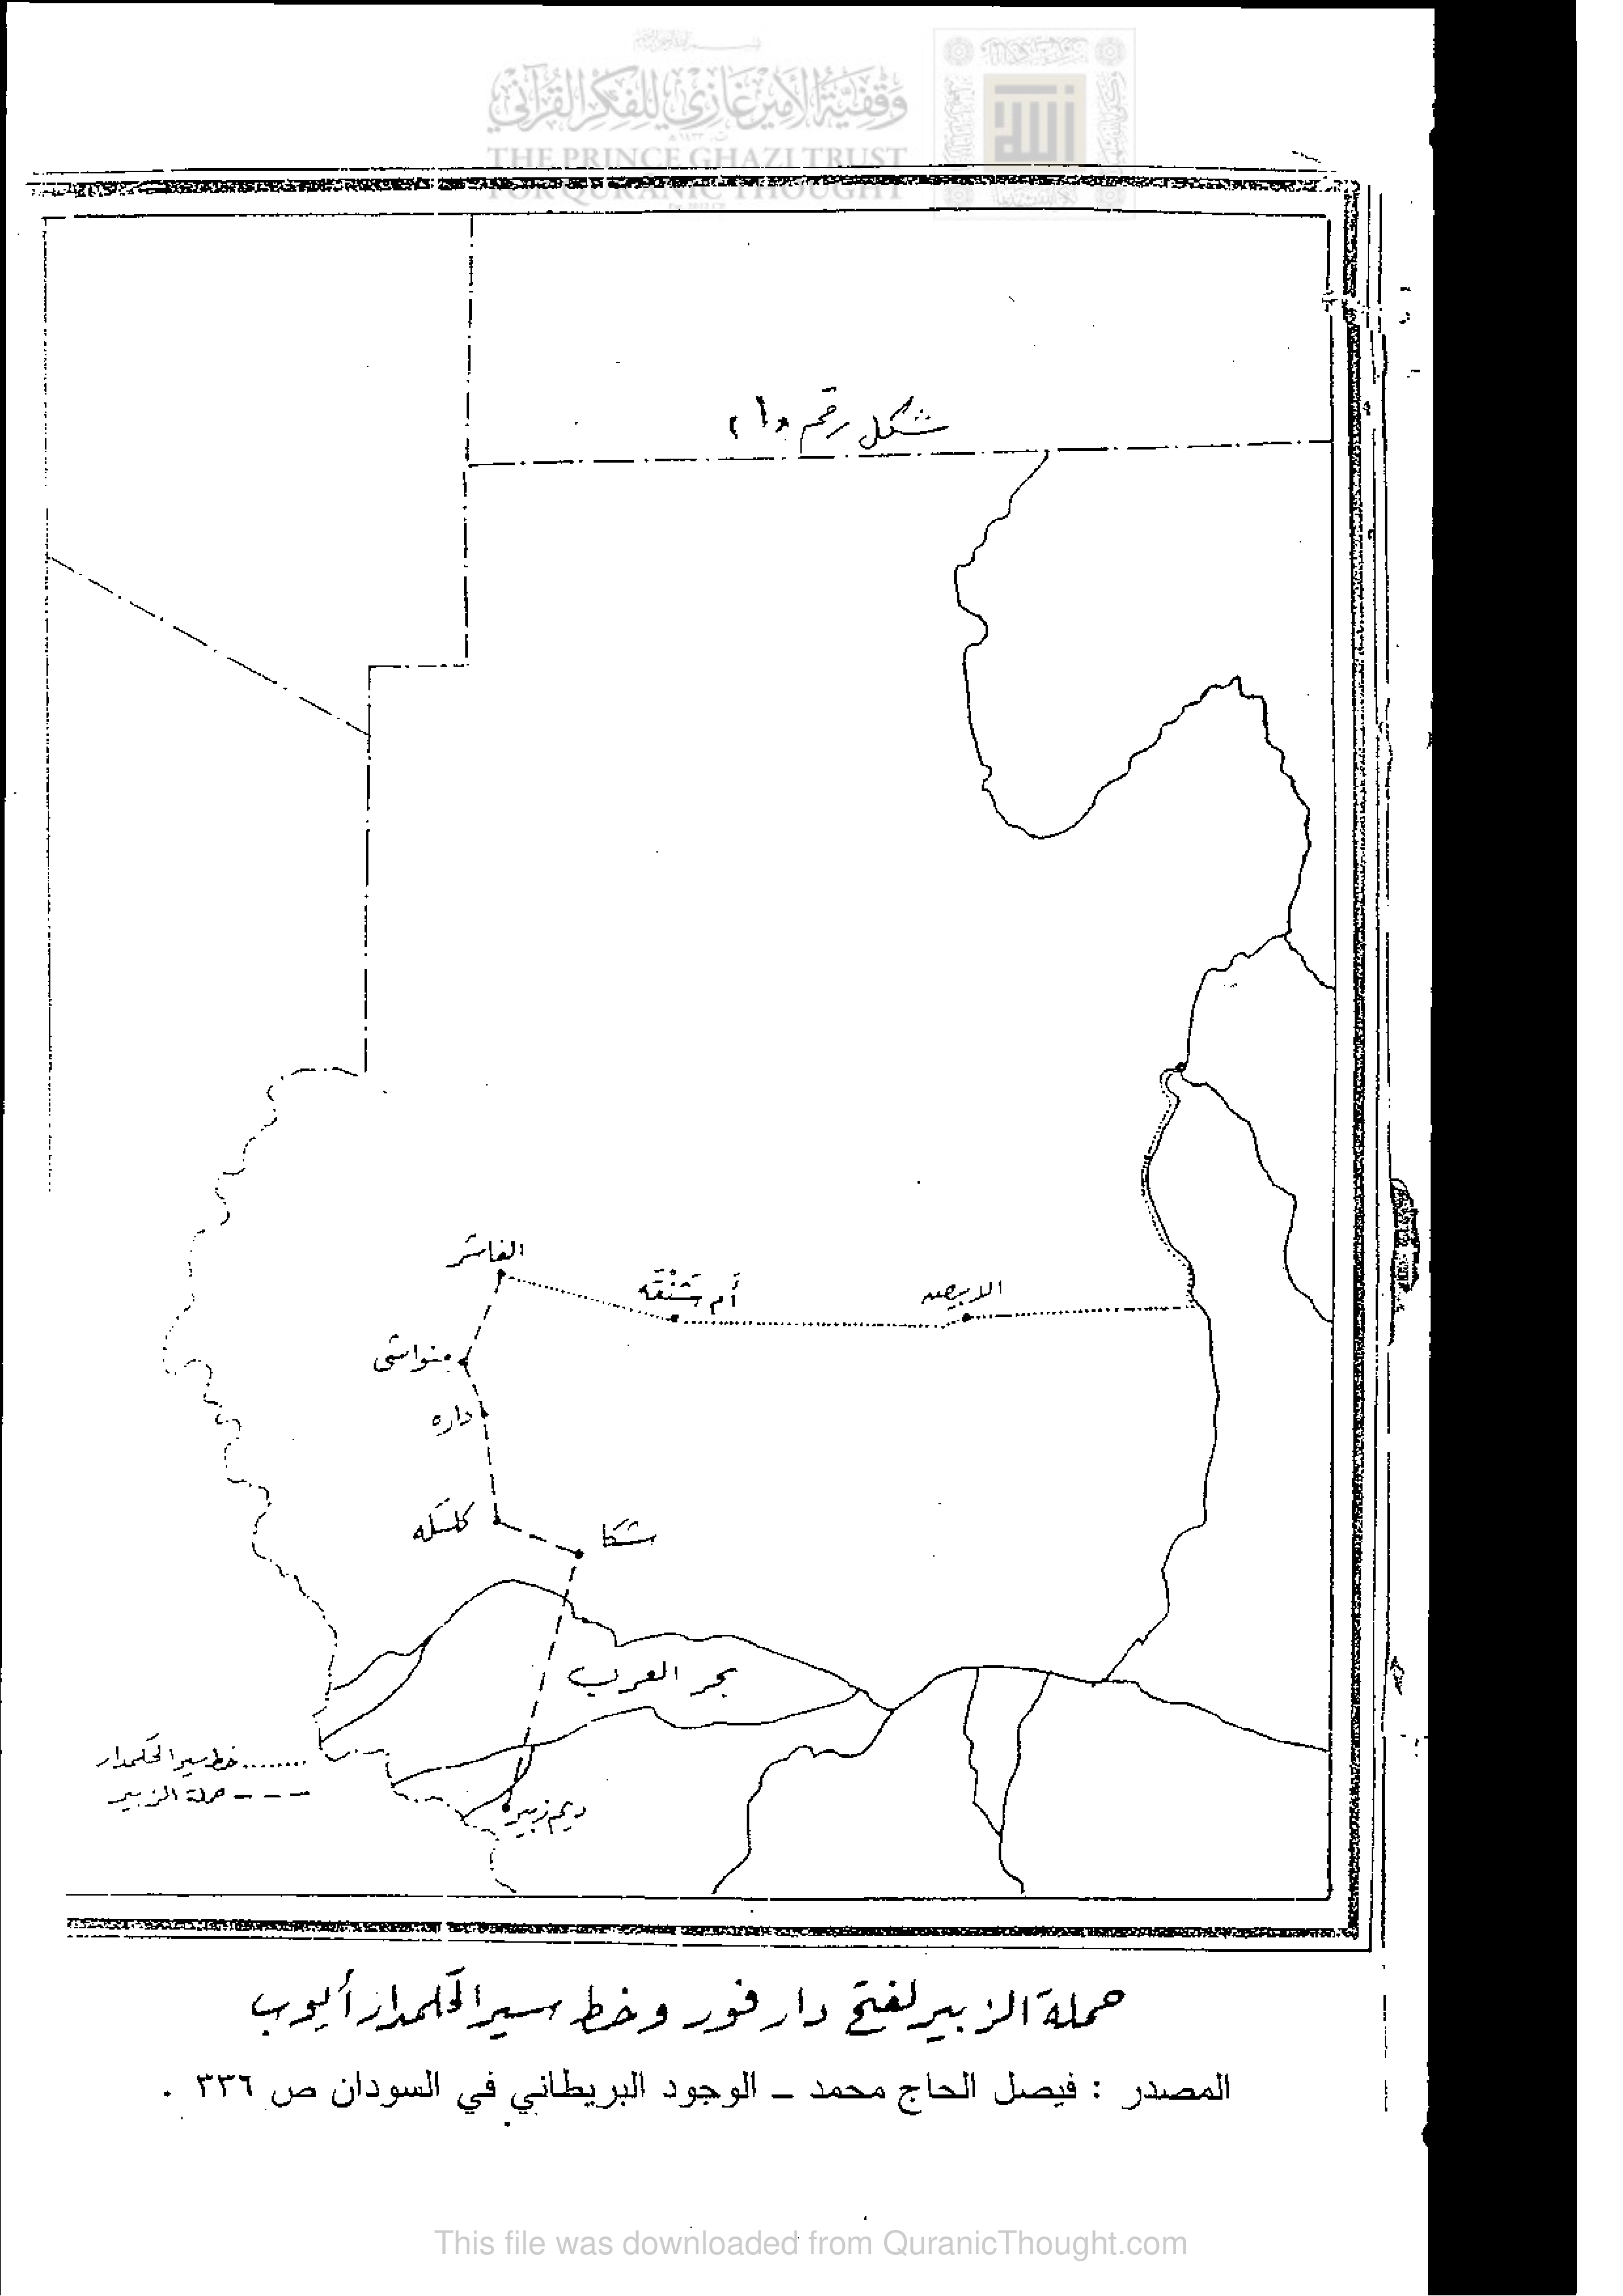 وقفية الأمير غازي للفكر القرآني
THE PRINCE GHAZI TRUST
FOR QURANIC THOUGHT
شكل رقم (١)
الفاشر
أم شنقه
الابيض
منواشى
داره
كلكله
شكا
بحر العرب
........ خط سير الحكمدار
--- حملة الزبير
ديم زبير
حملة الزبير لفتح دار فور وخط سير الحكمدار أيوب
المصدر : فيصل الحاج محمد ـ الوجود البريطاني في السودان ص ٣٣٦ .
This file was downloaded from QuranicThought.com